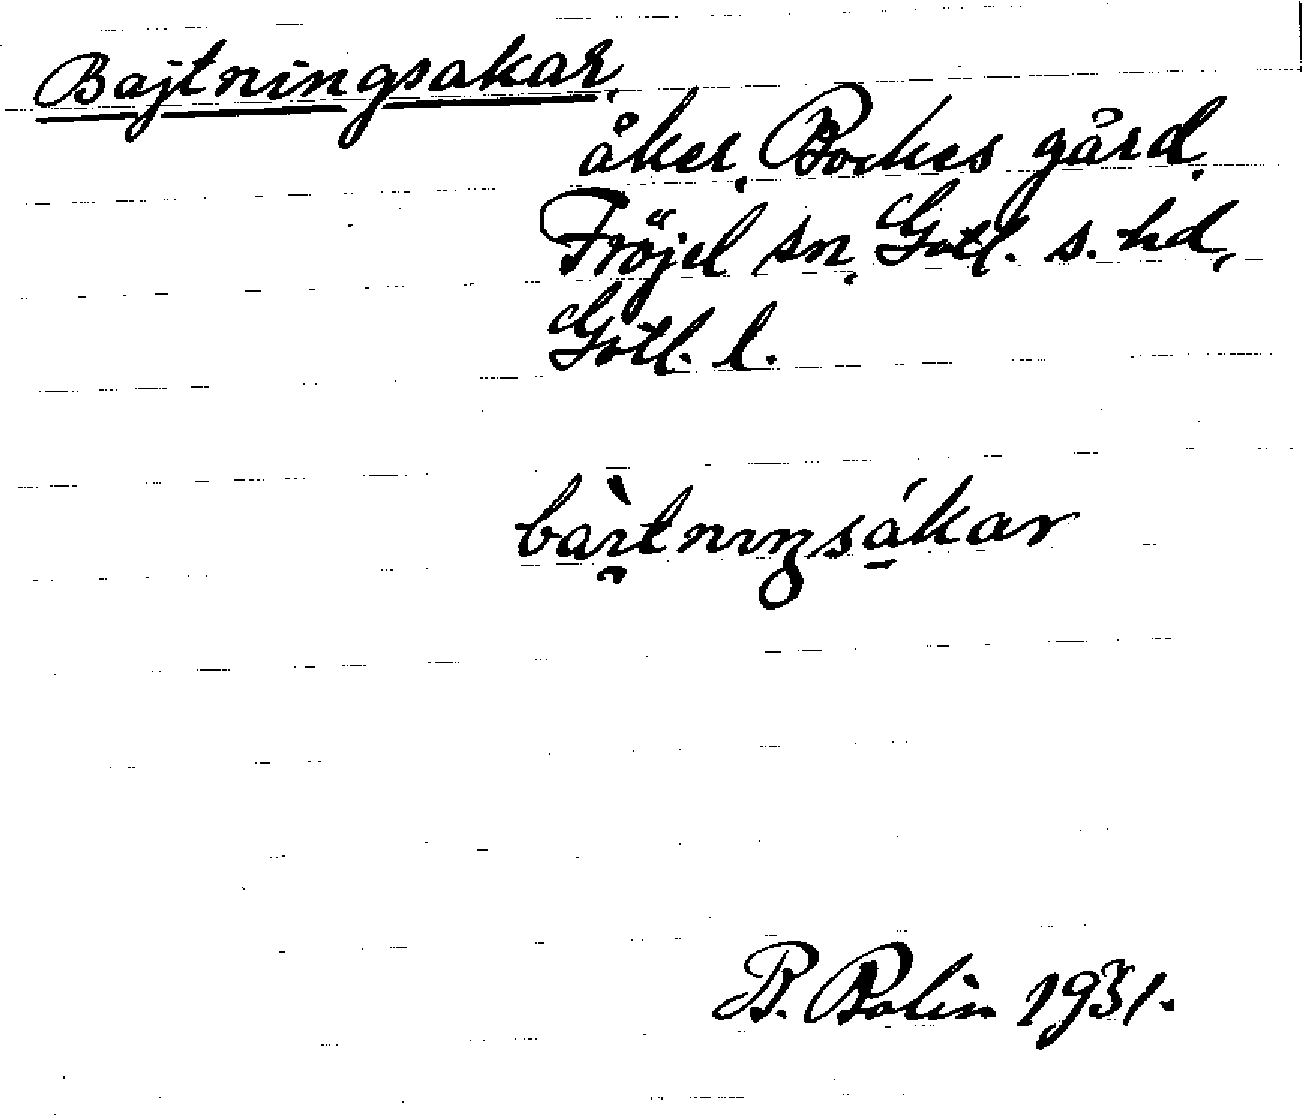 Bajtningsakar,
åker, Bockes gård,
Fröjel sn, Gotl. s. hd,
Gotl. l.
bài̯tnıŋsákar
B. Bolin 1931.